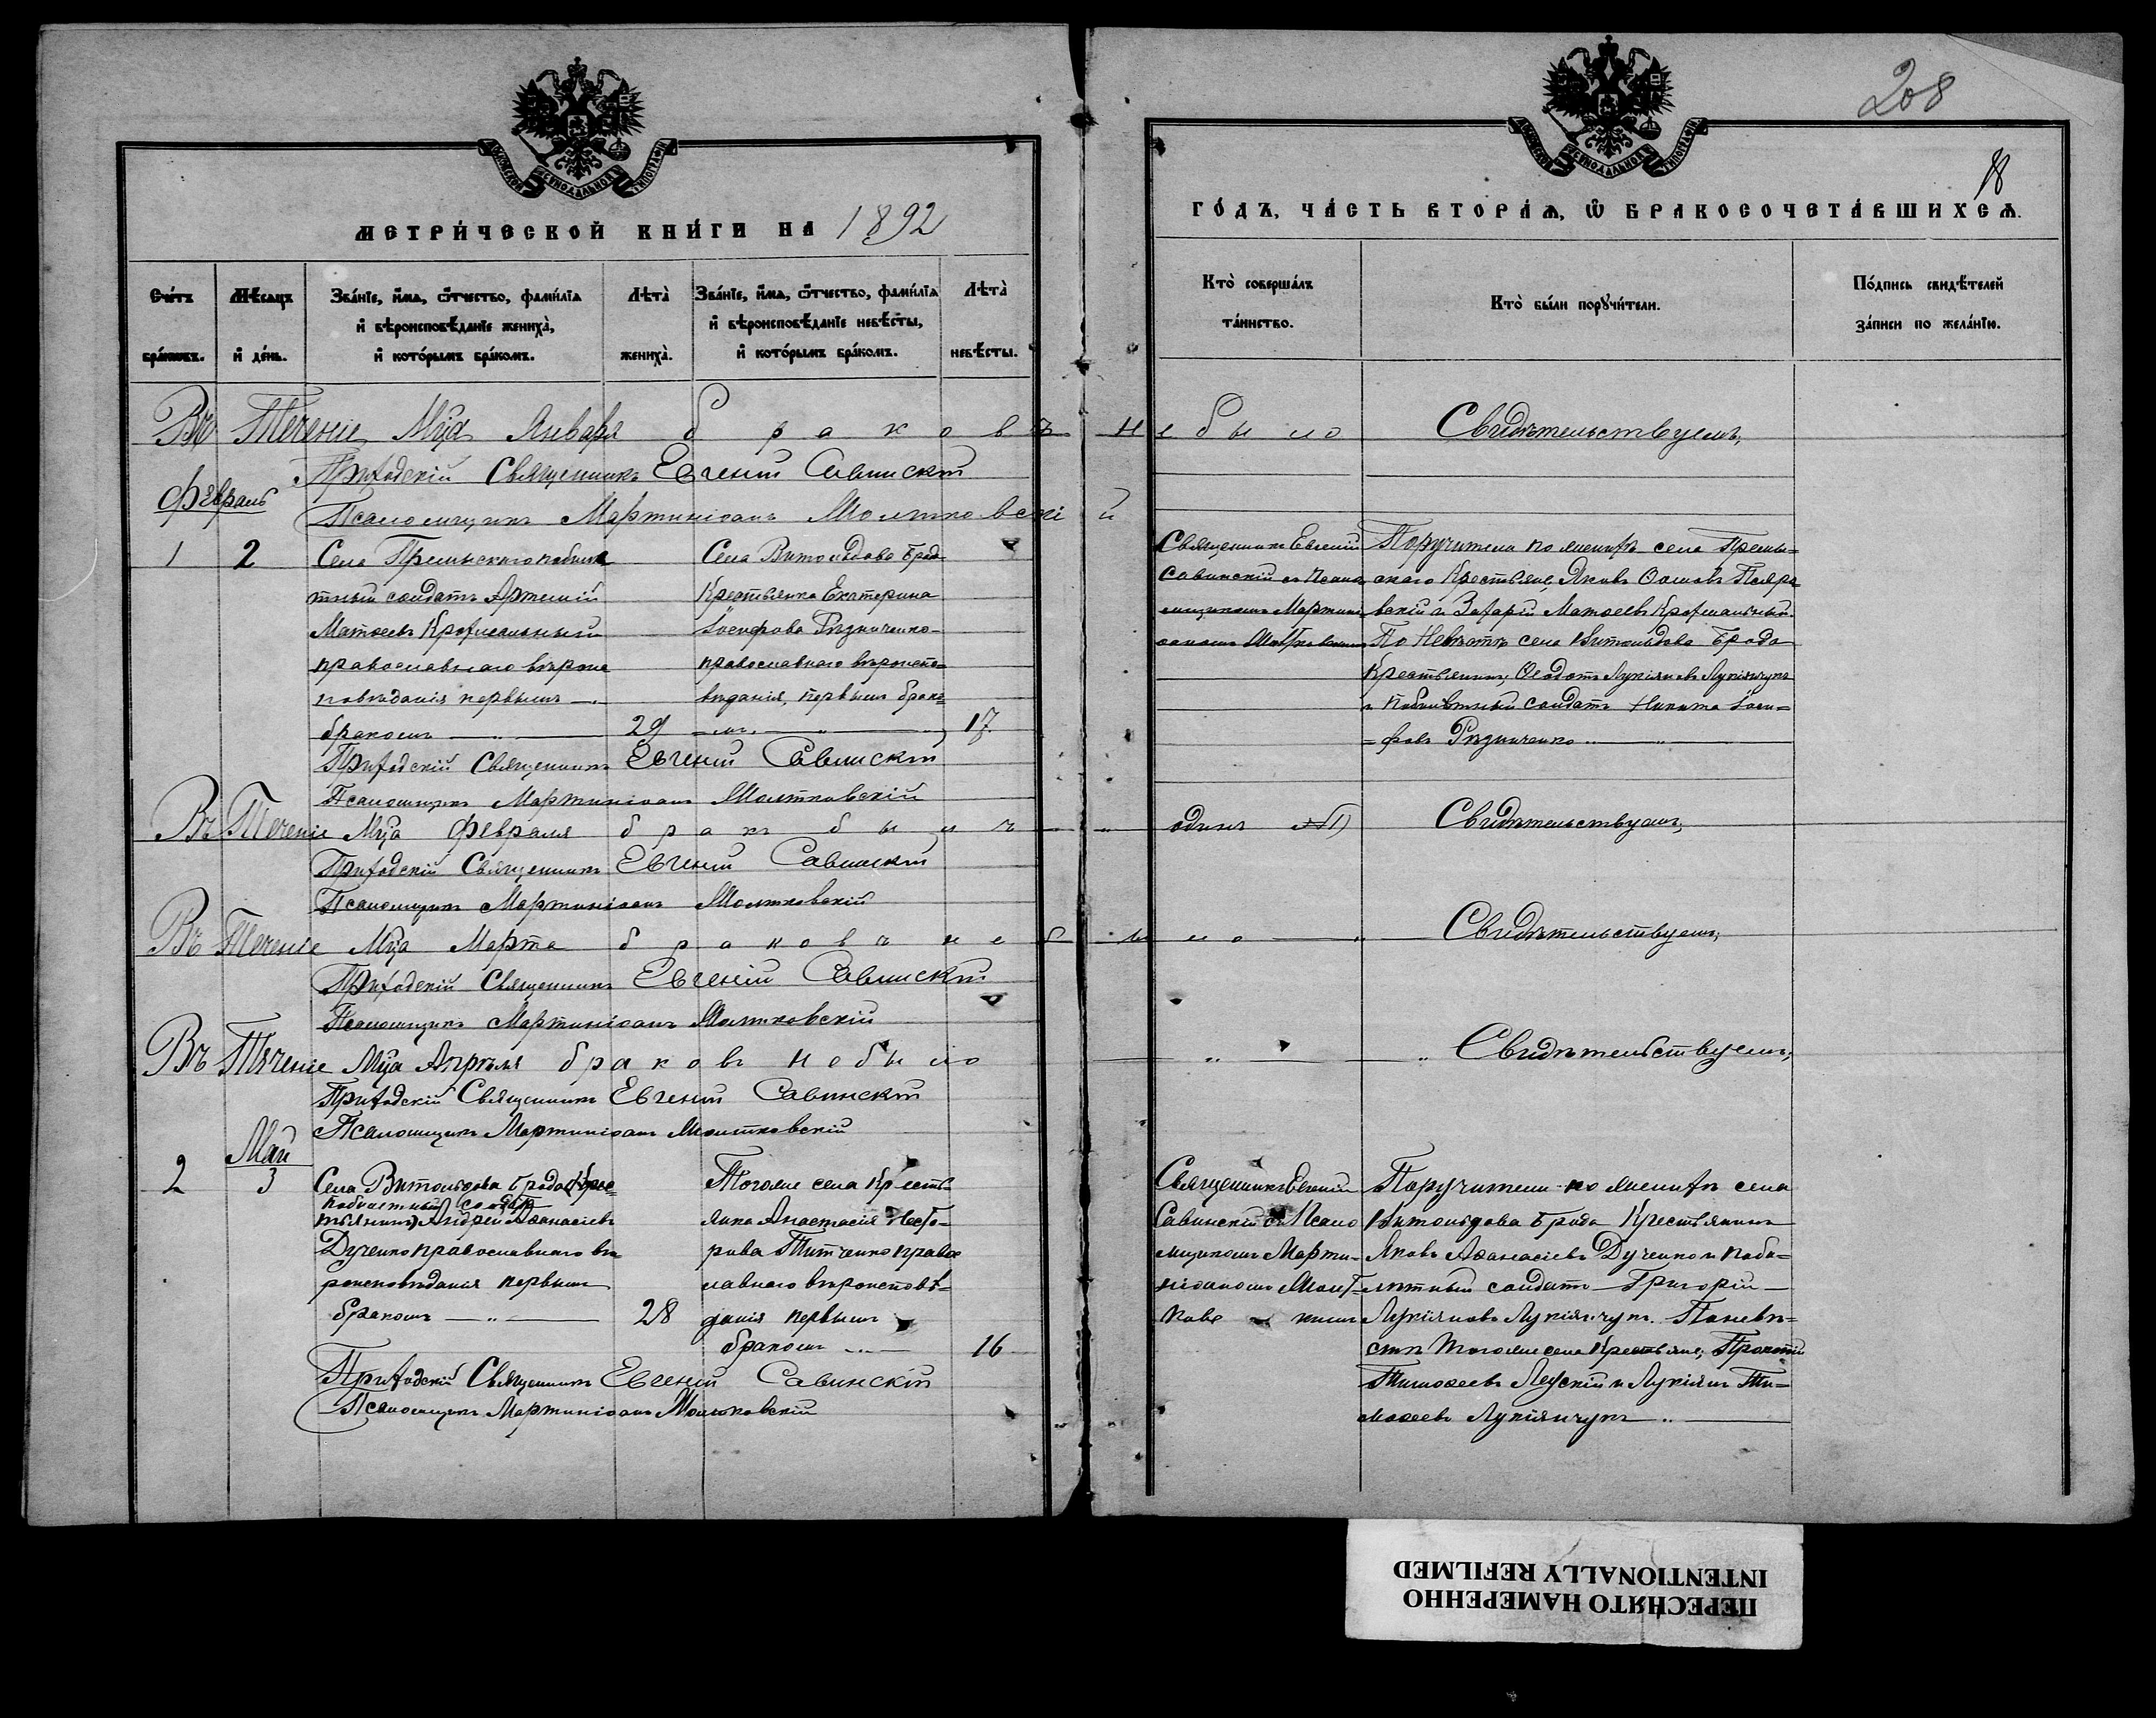 208
18
МЕТРИ́ЧЕСКОЙ КНИ́ГИ НА 1892
ГО́ДЪ, ЧА́СТЬ ВТОРА́Ѧ, Ѽ БРАКОСОЧЕТА́ВШИХСѦ.
Сче́тъ бра́ковъ.
Мѣ́сѧцъ и҆ де́нь.
Зва́нїе, и҆́мѧ, ѻ҆́тчество, фами́лїѧ
и҆ вѣроисповѣ́данїе жениха̀,
и҆ кото́рымъ бра́комъ.
Лѣта̀ жениха̀.
Зва́нїе, и҆́мѧ, ѻ҆́тчество, фами́лїѧ
и҆ вѣроисповѣ́данїе невѣ́сты,
и҆ кото́рымъ бра́комъ.
Лѣта̀ невѣ́сты.
Кто̀ соверша́лъ
та́инство.
Кто̀ бы́ли порꙋчи́тели.
По́дпись свидѣ́телей
за́писи по жела́нїю.
Въ Теченіе Мца Января браковъ не было Свидѣтельствуемъ,
Приходскій Священникъ Евгеній Савинскій
Псаломщикъ Мартиніоанъ Молтковскій
Февраль
1 2
Села
тный солдатъ Артемій
Матѳеевъ
православнаго вѣроис
повѣданія первымъ
бракомъ
29
Села Витольдова Брод
Крестьянка Екатерина
Іосифова Рѣзниченко
православнаго вѣроиспо=
вѣданія, первымъ брако=
=мъ
17
Священникъ Евгеній
Савинскій съ Псало
мщикомъ Мартині
Поручители по женихѣ села
скаго Крестьяне, Яковъ
вскій и Захарій Матѳеевъ
По Невѣстѣ села Витольдова Брода
Крестьянинъ, Ѳеодотъ Лукіяновъ Лукіянчукъ
и побилѣтный солдатъ Никита Іоси=
=фовъ Рѣзниченко
Приходскій Священникъ Евгеній Савинскій
Псаломщикъ Мартиніоанъ Молтковскій
Въ Теченіе Мца Февраля бракъ былъ одинъ №1) Свидѣтельствуемъ,
Приходскій Священникъ Евгеній Савинскій
Псаломщикъ Мартиніоанъ Молтковскій
Въ Теченіе Мца Марта браковъ не было Свидѣтельствуемъ,
Приходскій Священникъ Евгеній Савинскій
Псаломщикъ Мартиніоанъ Молтковскій
Въ Теченіе Мца Апрѣля браковъ не было Свидѣтельствуемъ,
Приходскій Священникъ Евгеній Савинскій
Псаломщикъ Мартиніоанъ Молтковскій
Май
2 3
Села Витольдова Брода (Крес=
побилетный солдатъ
тьянинъ) Андрей Аѳанасіевъ
Дученко православнаго вѣ
роисповѣданія первымъ
бракомъ
28
Тогоже села Кресть=
янка Анастасія Несто=
рова Титченко правос
лавнаго вѣроисповѣ=
данія первымъ
бракомъ
16
Священникъ Евгеній
Савинскій съ Псало
мщикомъ Марти=
ніоаномъ Молт=
ковс кимъ
Поручители по женихѣ села
Витольдова Брода Крестьянинъ
Яковъ Аѳанасіевъ Дученко и поби=
лѣтный солдатъ Григорій
Лукіяновъ Лукіянчукъ. Поневѣ=
стѣ тогоже села Крестьяне, Прокопій
Тимоѳеевъ и Лукіянъ Ти=
моѳеевъ Лукіянчукъ
Приходскій Священникъ Евгеній Савинскій
Псаломщикъ Мартиніоанъ Молтковскій
ПЕРЕСНЯТО НАМЕРЕННО
INTENTIONALLY REFILMED